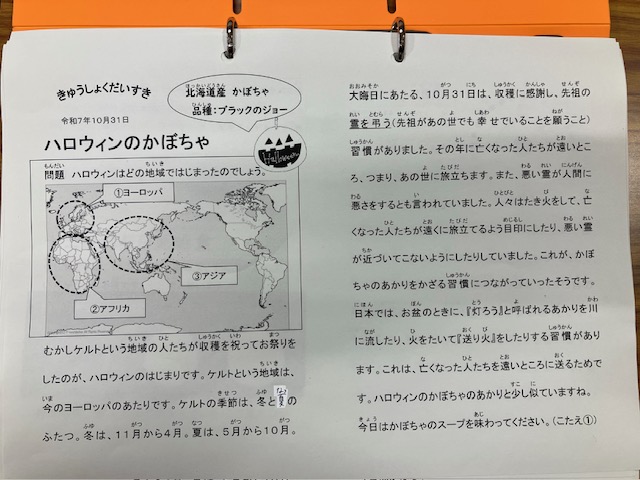 きゅうしょくだいすき
北海道産 かぼちゃ
品種：ブラックのジョー
令和7年10月31日
ハロウィンのかぼちゃ
Halloween
問題 ハロウィンはどの地域ではじまったのでしょう。
①ヨーロッパ
③アジア
②アフリカ
むかしケルトという地域の人たちが収穫を祝ってお祭りを
したのが、ハロウィンのはじまりです。ケルトという地域は、
今のヨーロッパのあたりです。ケルトの季節は、冬と夏の
ふたつ。冬は、11月から4月。夏は、5月から10月。
大晦日にあたる、10月31日は、収穫に感謝し、先祖の
霊を弔う(先祖があの世でも幸せでいることを願うこと)
習慣がありました。その年に亡くなった人たちが遠いとこ
ろ、つまり、あの世に旅立ちます。また、悪い霊が人間に
悪さをするとも言われていました。人々はたき火をして、亡
くなった人たちが遠くに旅立てるよう目印にしたり、悪い霊
が近づいてこないようにしたりしていました。これが、かぼ
ちゃのあかりをかざる習慣につながっていったそうです。
日本では、お盆のときに、『灯ろう』と呼ばれるあかりを川
に流したり、火をたいて『送り火』をしたりする習慣があり
ます。これは、亡くなった人たちを遠いところに送るためで
す。ハロウィンのかぼちゃのあかりと少し似ていますね。
今日はかぼちゃのスープを味わってください。(こたえ①)